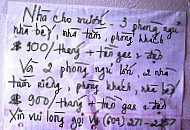 Nhà cho mướn, 3 phòng ngủ
nhà bếp, nhà tắm, phòng khách
$ 900/tháng + tiền gas & điện
Và 2 phòng ngủ lớn, 2 nhà
tắm riêng, phòng khách, nhà bếp
$ 900/tháng + tiền gas & điện
Xin vui lòng gọi Vy (604) 271-2257